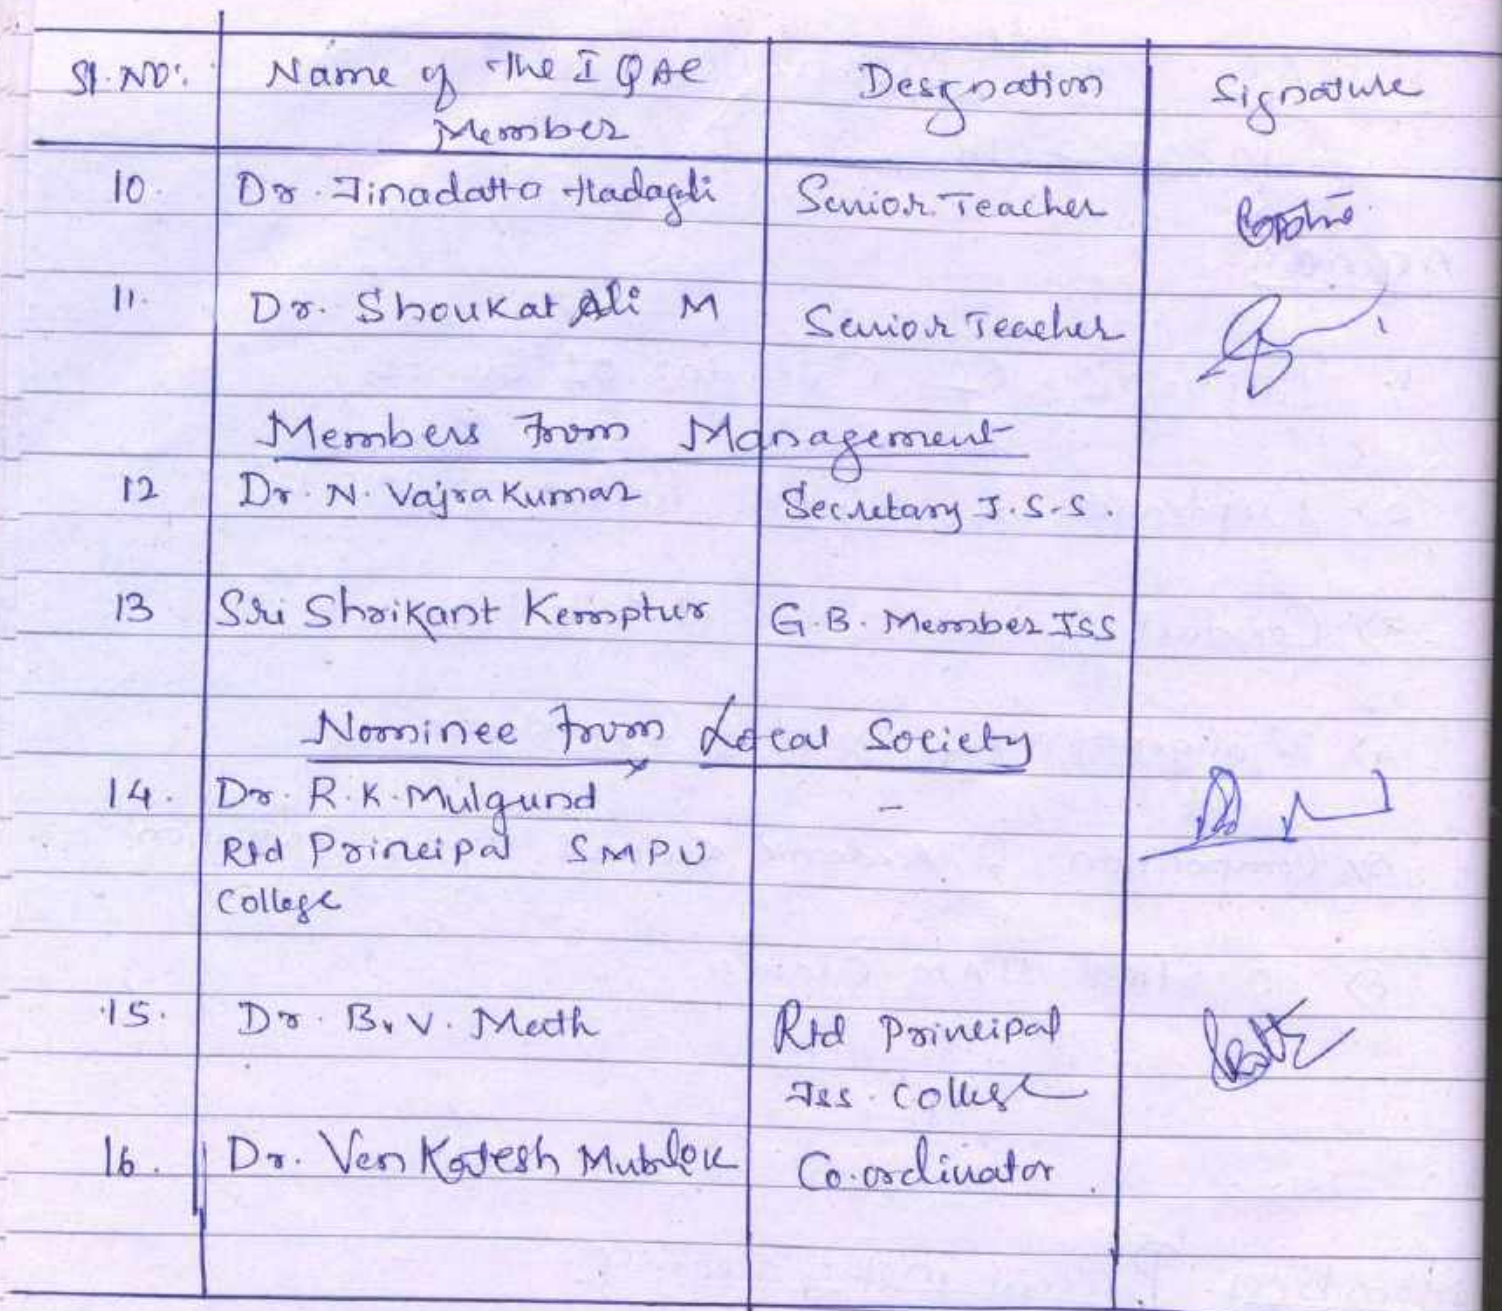 Sl. No. Name of the IQAC Designation Signature
Member
10. Dr. Jinadatta Hadagali Senior Teacher
11. Dr. Shoukat Ali M Senior Teacher
Members from Management
12 Dr. N. Vajrakumar Secretary J.S.S.
13 Sri Shrikant Kemptur G.B. Member JSS
Nominee from Local Society
14. Dr. R.K. Mulgund -
Rtd Principal SMPU
College
15. Dr. B.V. Math Rtd Principal
JSS. College
16. Dr. Venkatesh Co-ordinator